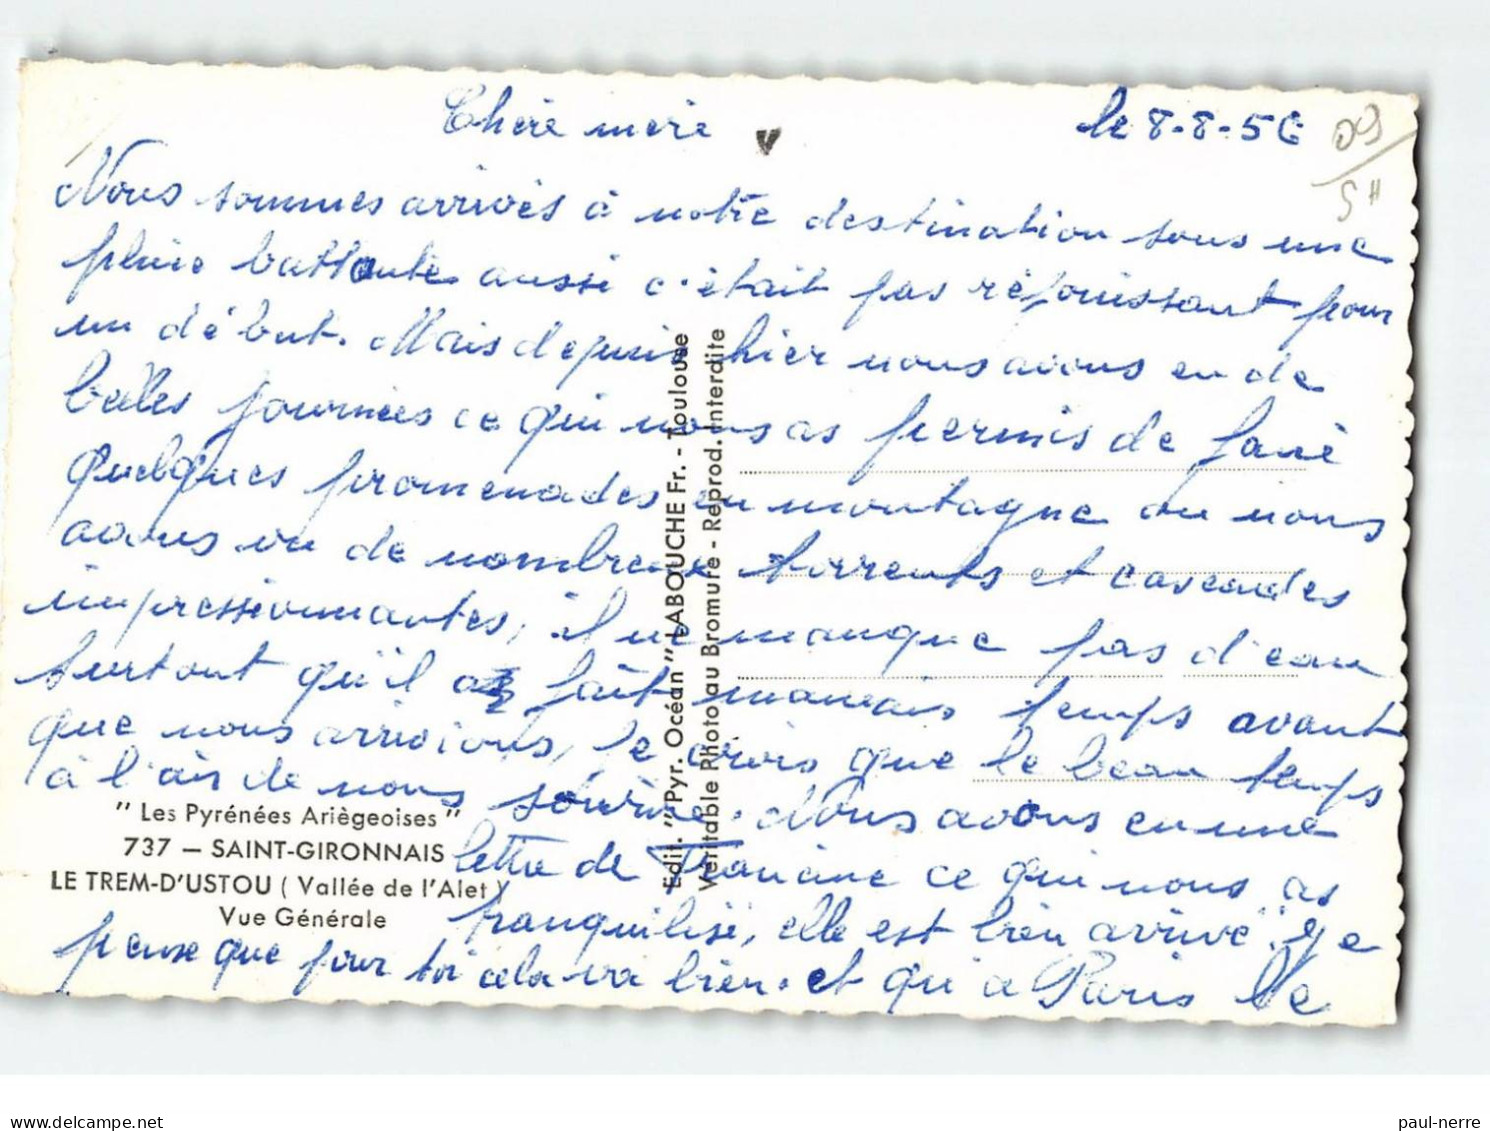 Chère mère
le 8-8-56
09
SH
Nous sommes arrivés à notre destination sous une
pluie battante aussi c'était pas réjouissant pour
un début. Mais depuis hier nous avons eu de
belles journées ce qui nous as permis de faire
quelques promenades en montagne ou nous
avons vu de nombreux torrents et cascades
impressionnantes, il ne manque pas d'eau
surtout qu'il a fait mauvais temps avant
que nous arrivions, je crois que le beau temps
à l'air de nous sourire. Nous avons eu une
lettre de ce qui nous as
tranquilisé, elle est bien arrivé. Je
pense que pour toi cela va bien. et qu'a Paris le
" Les Pyrénées Ariègeoises "
737 — SAINT-GIRONNAIS
LE TREM-D'USTOU ( Vallée de l'Alet )
Vue Générale
Edit. "Pyr. Océan" LABOUCHE Fr. - Toulouse
Véritable Photo au Bromure - Reprod. interdite
paul-nerre